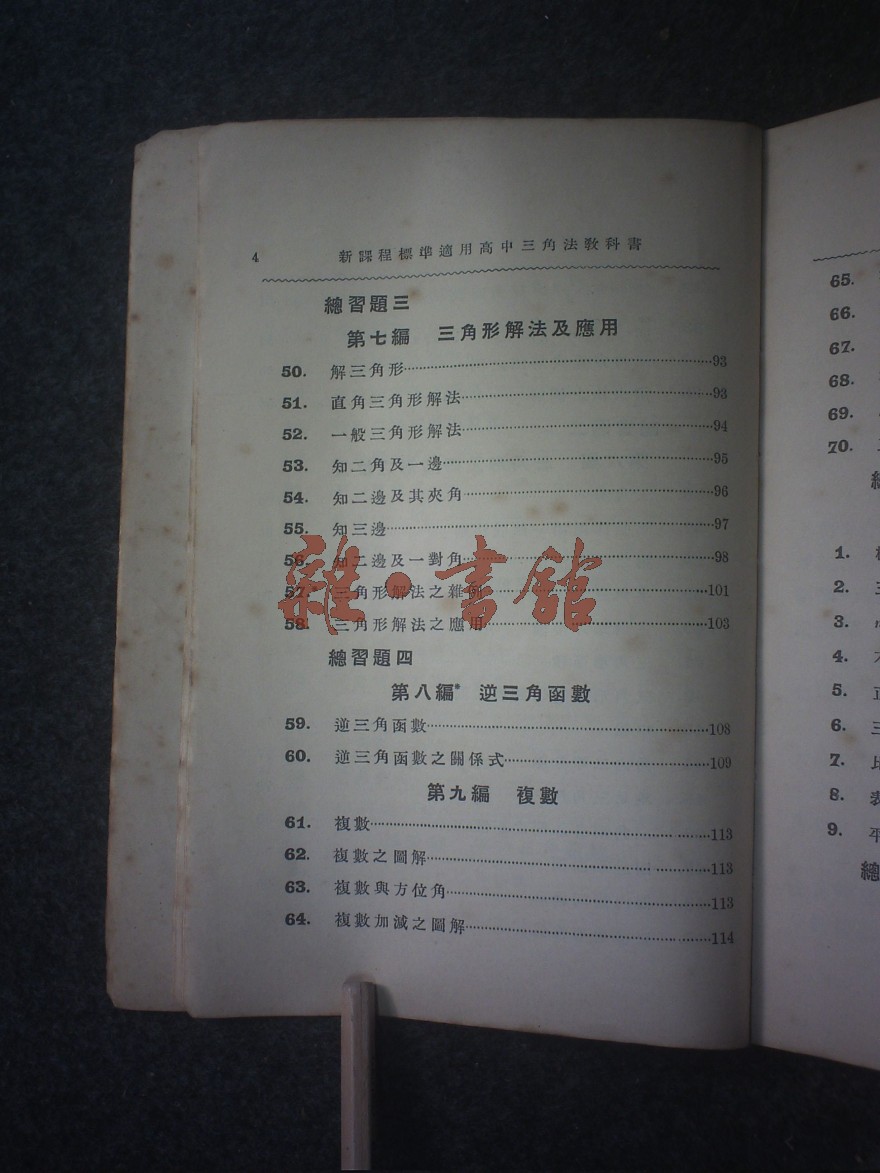 4 新課程標準適用高中三角法教科書
總習題三
第七編 三角形解法及應用
50. 解三角形………93
51. 直角三角形解法………93
52. 一般三角形解法………94
53. 知二角及一邊………95
54. 知二邊及其夾角………96
55. 知三邊………97
56. 知二邊及一對角………98
57. 三角形解法之雜例………101
58. 三角形解法之應用………103
總習題四
第八編* 逆三角函數
59. 逆三角函數………108
60. 逆三角函數之關係式………109
第九編 複數
61. 複數………113
62. 複數之圖解………113
63. 複數與方位角………113
64. 複數加減之圖解………114
雜·書館
65.
66.
67.
68.
69.
70.
1.
2.
3.
4.
5.
6.
7.
8.
9.